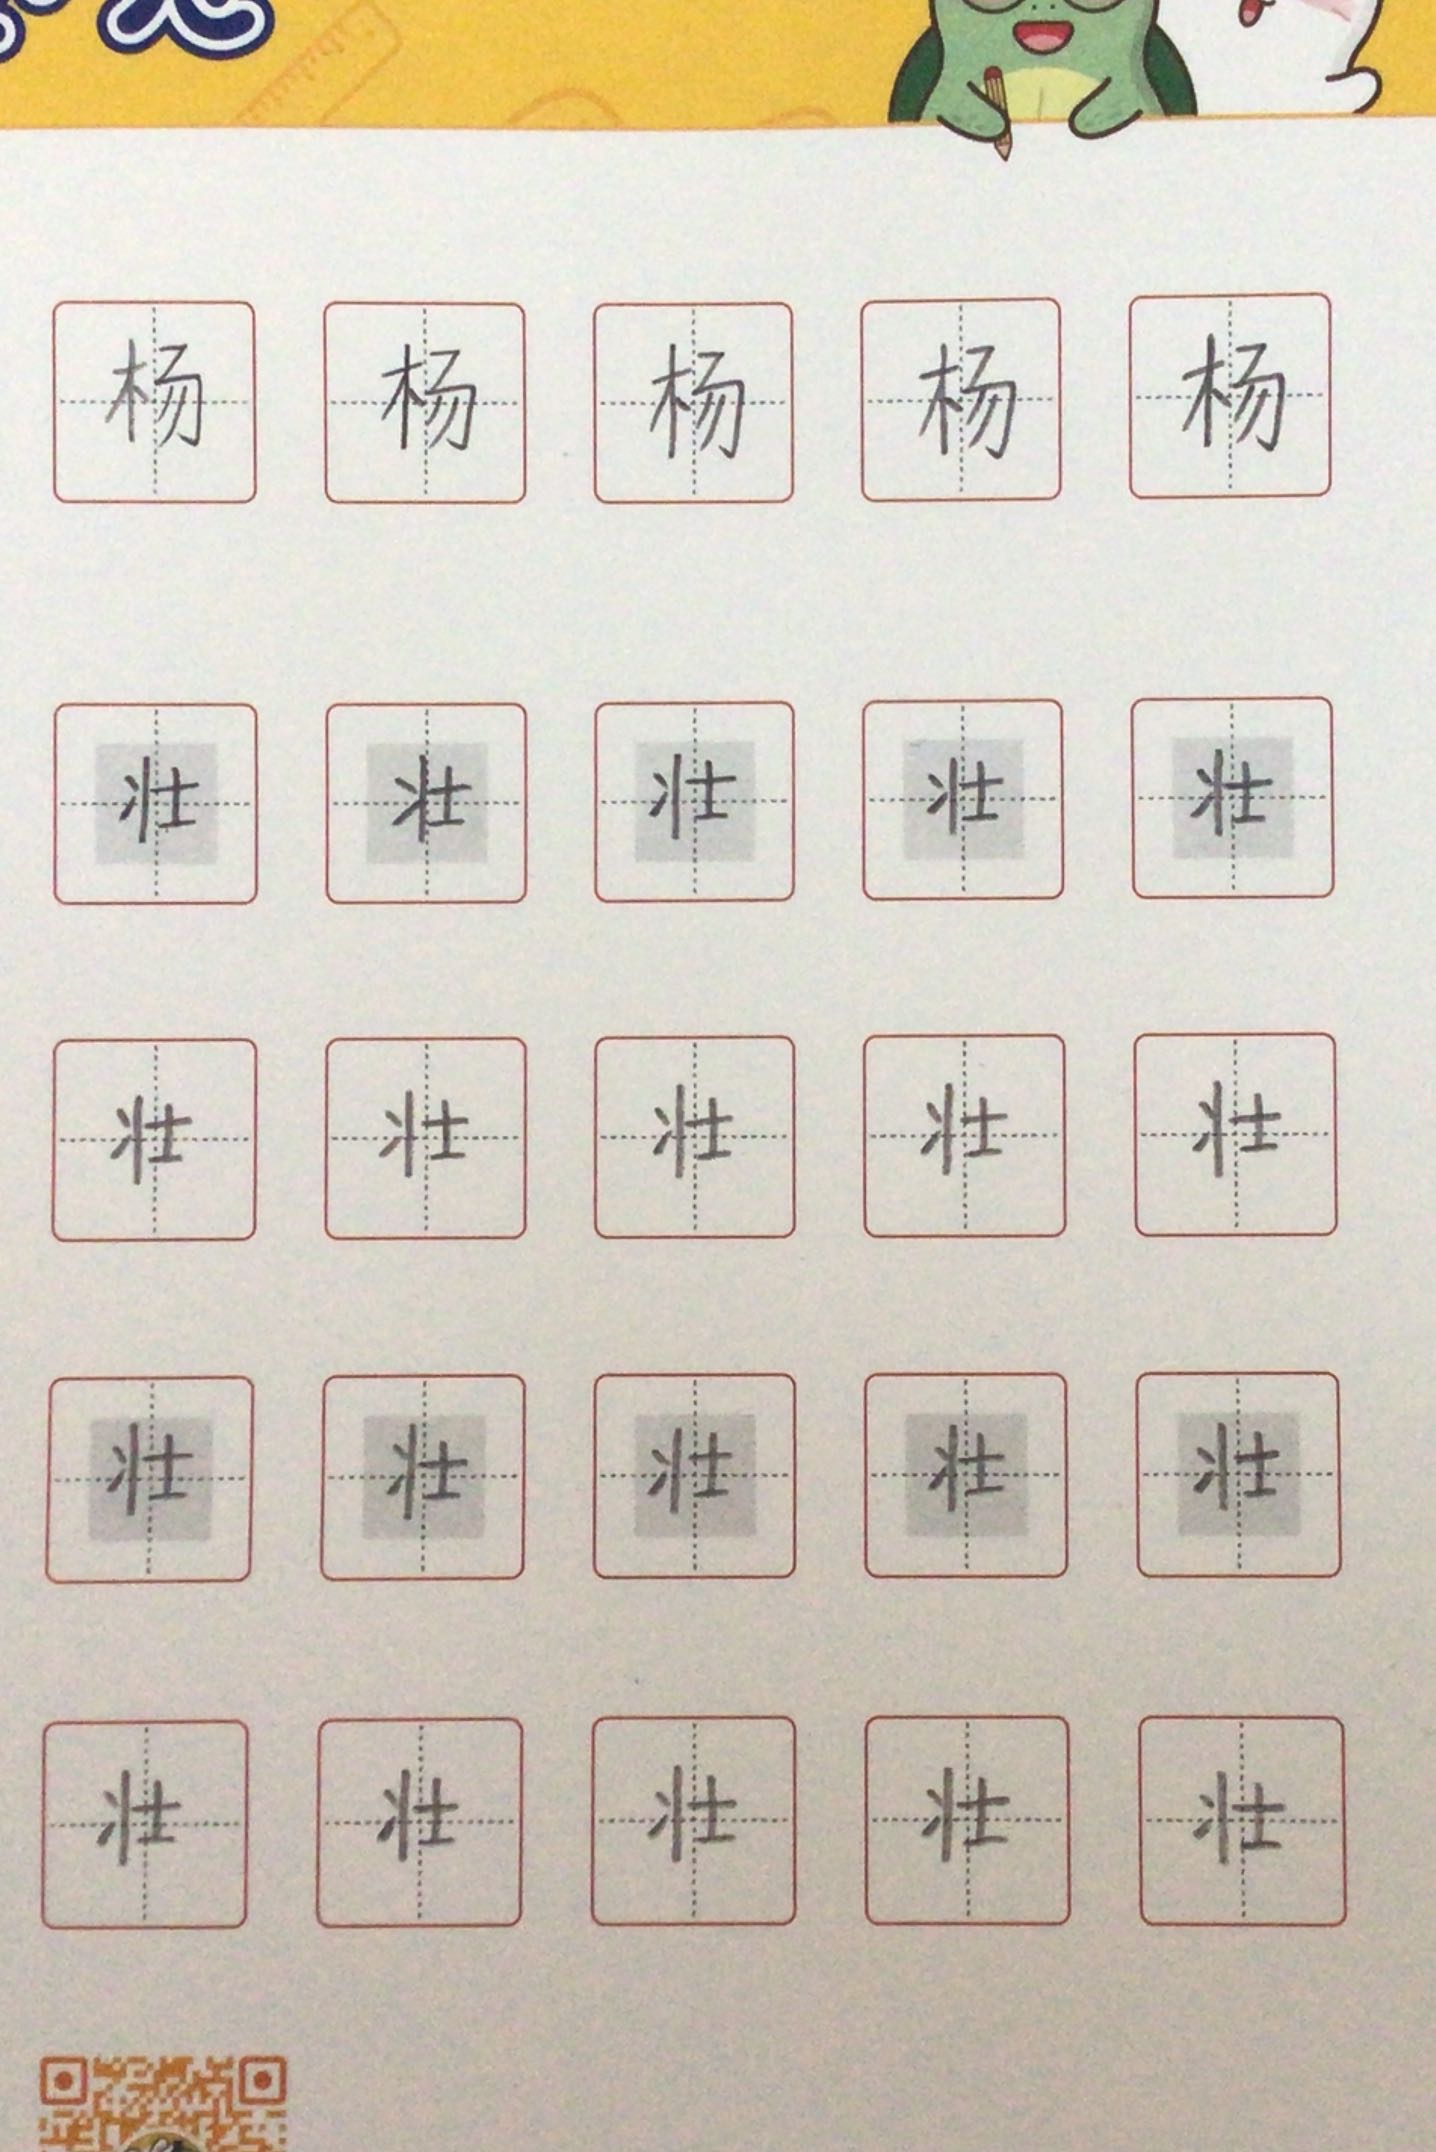 杨 杨 杨 杨 杨
壮 壮 壮 壮 壮
壮 壮 壮 壮 壮
壮 壮 壮 壮 壮
壮 壮 壮 壮 壮